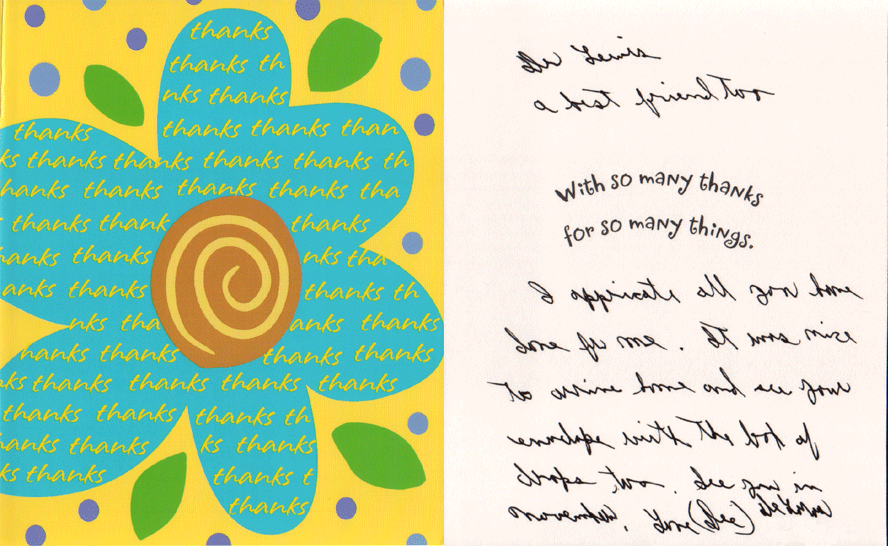 thanks
thanks th
nks thanks
thanks thanks thanks than
ks thanks thanks thanks thanks th
hanks thanks thanks thanks tha
thanks thank thanks
anks thanks nks tha
anks thanks thanks th
nks tha anks thanks
hanks thanks thanks thanks
ks thanks thanks thanks thanks
thanks thanks thanks th
hanks thanks ks thanks
ks thanks thanks t
thanks
Dr Lewis
a best friend too
With so many thanks
for so many things.
I appricate all you have
done for me. It was nice
to arrive home and see your
envelope with the book of
drops too. See you in
November. Love (Dee)